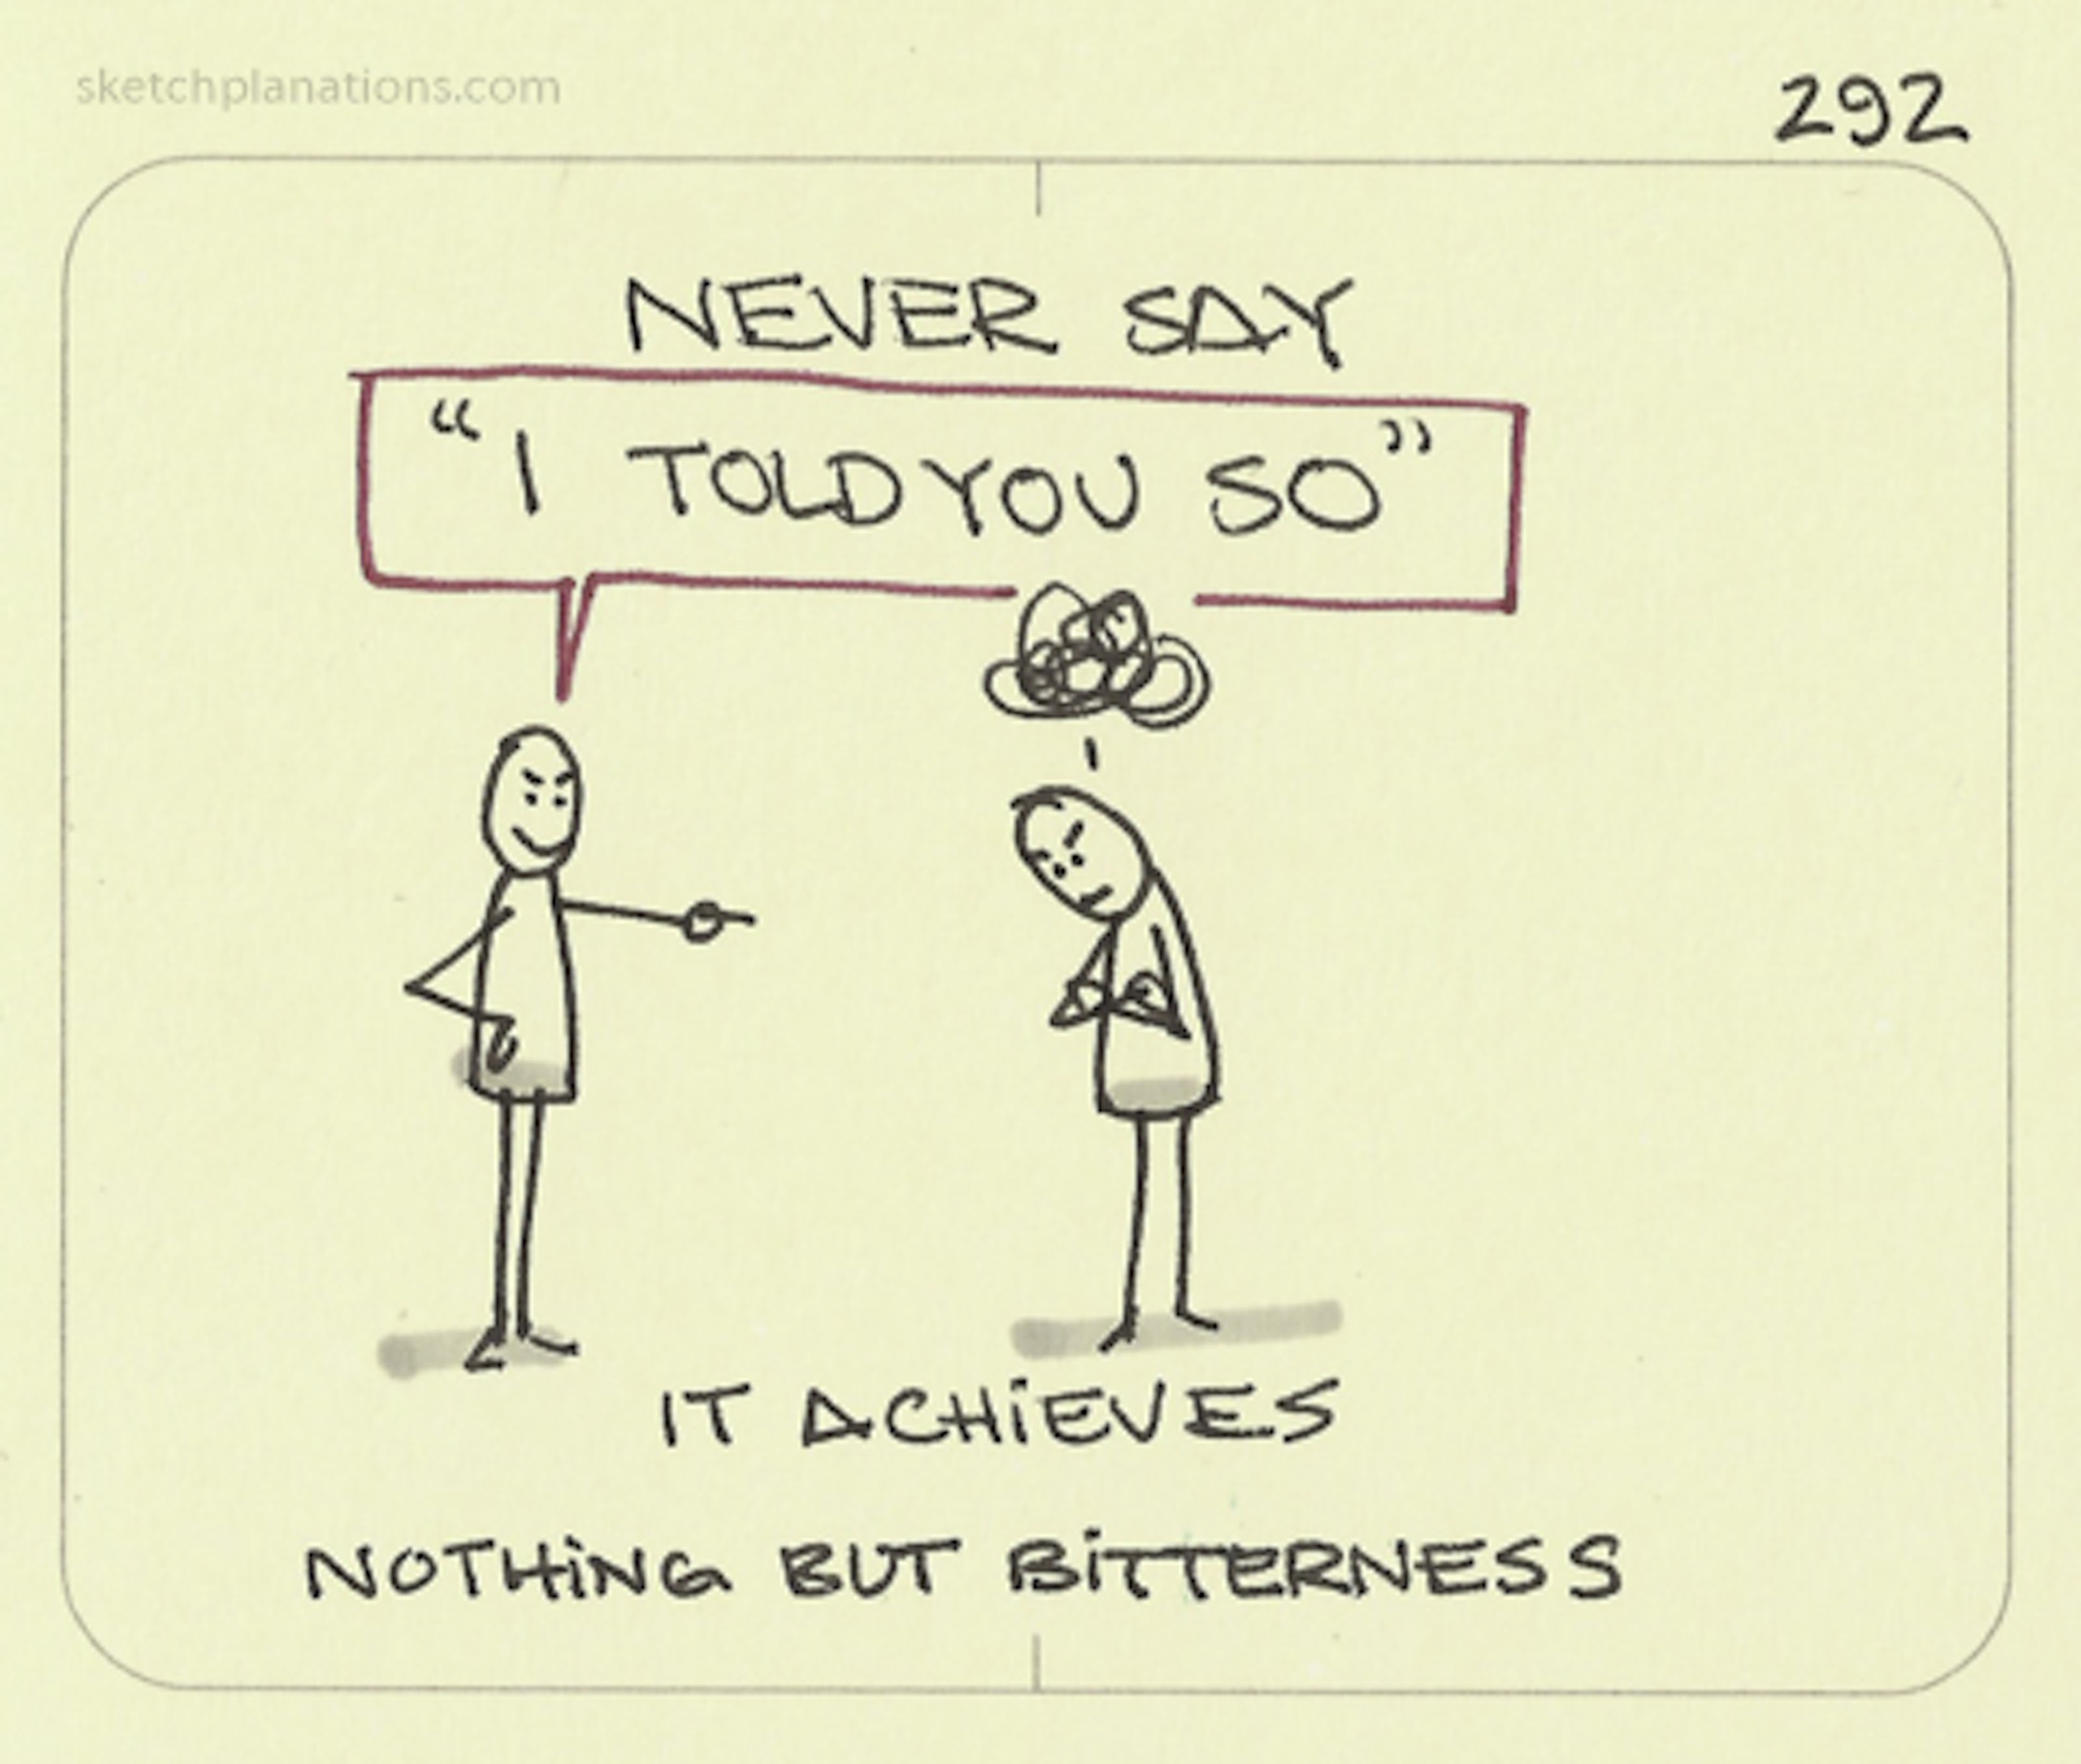 sketchplanations.com
292
NEVER SAY
“I TOLD YOU SO”
IT ACHIEVES
NOTHING BUT BITTERNESS